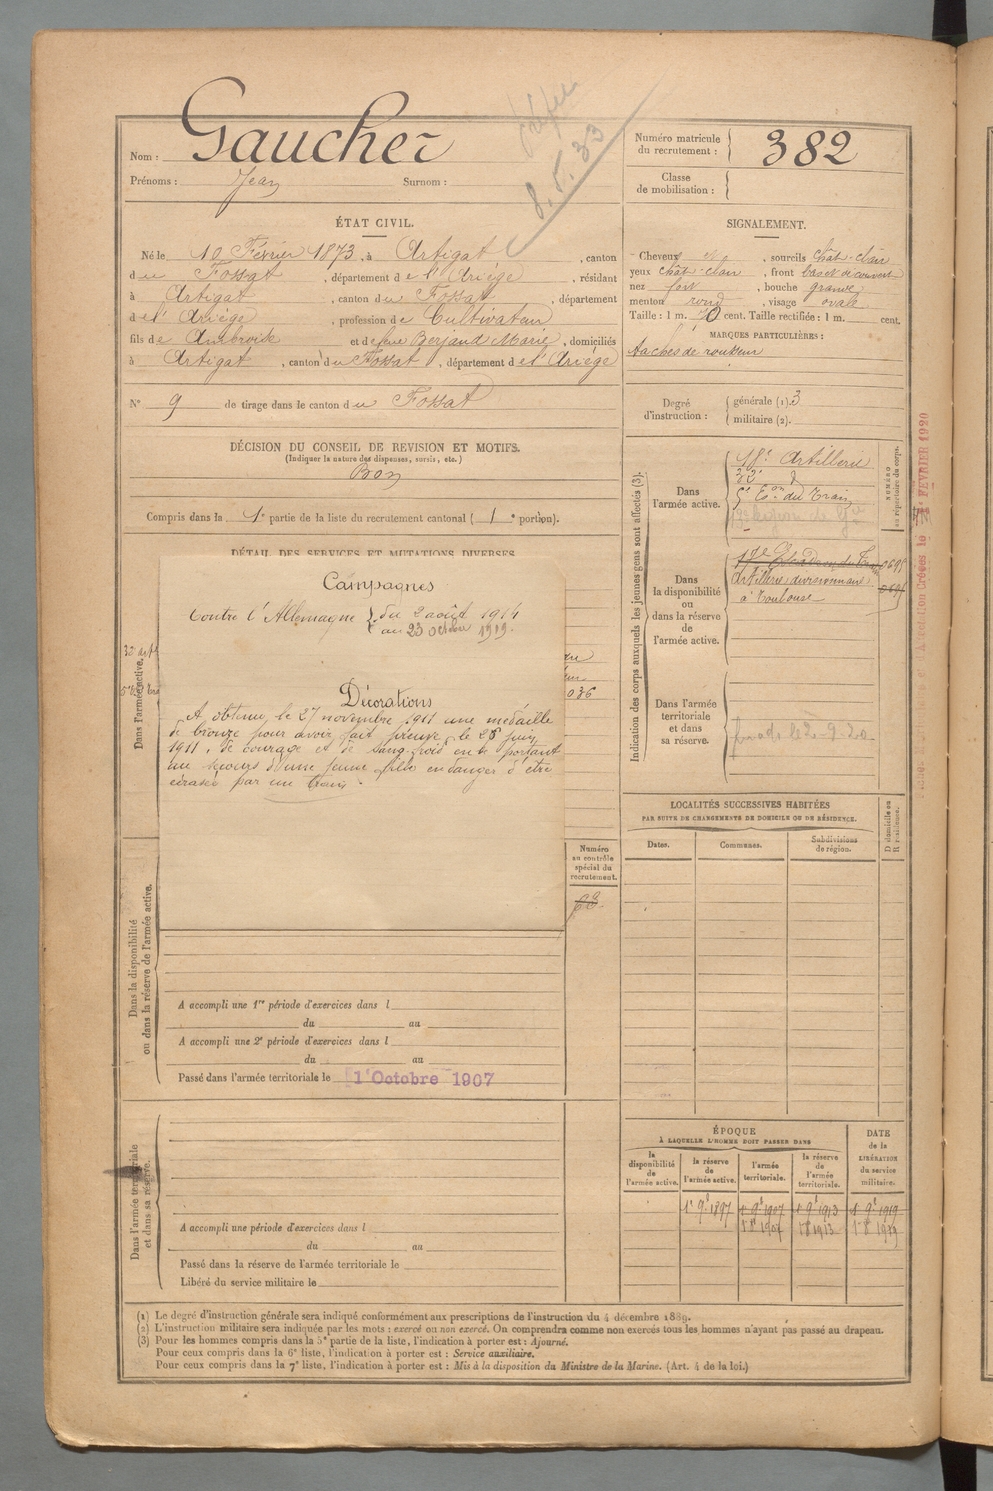 Nom : Gaucher
Prénoms : Jean Surnom :
8.5.33
Numéro matricule
du recrutement : 382
Classe
de mobilisation :
ÉTAT CIVIL.
Né le 10 Février 1873, à Artigat, canton
du Fossat, département de l'Ariège, résidant
à Artigat, canton du Fossat, département
de l'Ariège, profession de Cultivateur
fils de Ambroise et de feue Berjaud Marie, domiciliés
à Artigat, canton du Fossat, département de l'Ariège
N° 9 de tirage dans le canton du Fossat
DÉCISION DU CONSEIL DE REVISION ET MOTIFS.
(Indiquer la nature des dispenses, sursis, etc.)
Bon
Compris dans la 1e partie de la liste du recrutement cantonal (1e portion).
SIGNALEMENT.
Cheveux et, sourcils chât-clair
yeux chât-clair, front bas et découvert
nez fort, bouche grande
menton rond, visage ovale
Taille : 1 m. 70 cent. Taille rectifiée : 1 m. cent.
MARQUES PARTICULIÈRES :
taches de rousseur
Degré
d'instruction :
générale (1). 3
militaire (2).
DÉTAIL DES SERVICES ET MUTATIONS DIVERSES
Campagnes
Contre l'Allemagne du 2 août 1914
au 23 octobre 1919.
Décorations
A obtenu le 27 novembre 1911 une médaille
de bronze pour avoir fait preuve, le 28 juin
1911, de courage et de sang-froid en se portant
au secours d'une jeune fille en danger d'être
écrasée par un train.
036
Dans l'armée active.
Numéro
au contrôle
spécial du
recrutement.
Dans la disponibilité
ou dans la réserve de l'armée active.
A accompli une 1re période d'exercices dans l
du au
A accompli une 2e période d'exercices dans l
du au
Passé dans l'armée territoriale le 1er Octobre 1907
Dans l'armée territoriale
et dans sa réserve.
A accompli une période d'exercices dans l
du au
Passé dans la réserve de l'armée territoriale le
Libéré du service militaire le
Indication des corps auxquels les jeunes gens sont affectés (3).
NUMÉRO
au répertoire du corps.
Dans
l'armée active.
18e Artillerie
32e d°
5e Eon du Train
Dans
la disponibilité
ou
dans la réserve
de
l'armée active.
17e Escadron du Train
Artillerie divisionnaire
à Toulouse
Dans l'armée
territoriale
et dans
sa réserve.
LOCALITÉS SUCCESSIVES HABITÉES
PAR SUITE DE CHANGEMENTS DE DOMICILE OU DE RÉSIDENCE.
Dates.
Communes.
Subdivisions
de région.
D domicile ou
R résidence.
ÉPOQUE
À LAQUELLE L'HOMME DOIT PASSER DANS
la
disponibilité
de
l'armée active.
la réserve
de
l'armée active.
l'armée
territoriale.
la réserve
de
l'armée
territoriale.
DATE
de la
LIBÉRATION
du service
militaire.
1e 9e 1897 1 9e 1907 1 9e 1913 1 9e 1919
1 8e 1907 1 8e 1913 1 8e 1919
(1) Le degré d'instruction générale sera indiqué conformément aux prescriptions de l'instruction du 4 décembre 1889.
(2) L'instruction militaire sera indiquée par les mots : exercé ou non exercé. On comprendra comme non exercés tous les hommes n'ayant pas passé au drapeau.
(3) Pour les hommes compris dans la 5e partie de la liste, l'indication à porter est : Ajourné.
Pour ceux compris dans la 6e liste, l'indication à porter est : Service auxiliaire.
Pour ceux compris dans la 7e liste, l'indication à porter est : Mis à la disposition du Ministre de la Marine. (Art. 4 de la loi.)